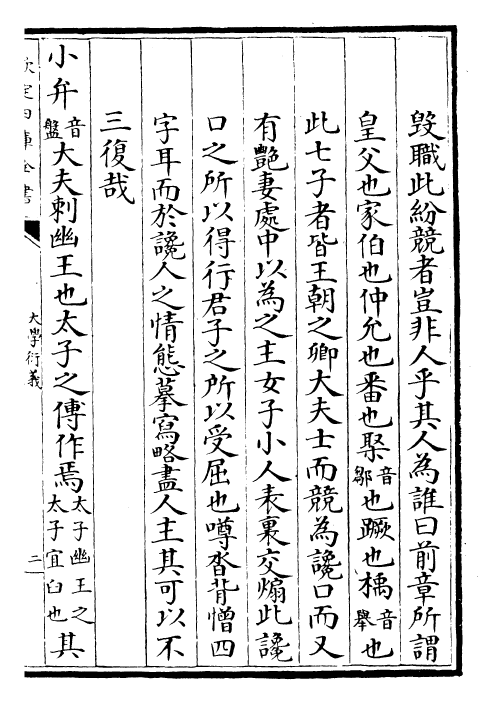 毁職此紛競者豈非人乎其人為誰曰前章所謂
皇父也家伯也仲允也番也棸音鄒也蹶也楀音舉也
此七子者皆王朝之卿大夫士而競為讒口而又
有艶妻處中以為之主女子小人表裏交煽此讒
口之所以得行君子之所以受屈也噂沓背憎四
字耳而於讒人之情態摹寫略盡人主其可以不
三復哉
小弁音盤大夫刺幽王也太子之傅作焉太子幽王之太子宜臼也其
欽定四庫全書
大學衍義
二